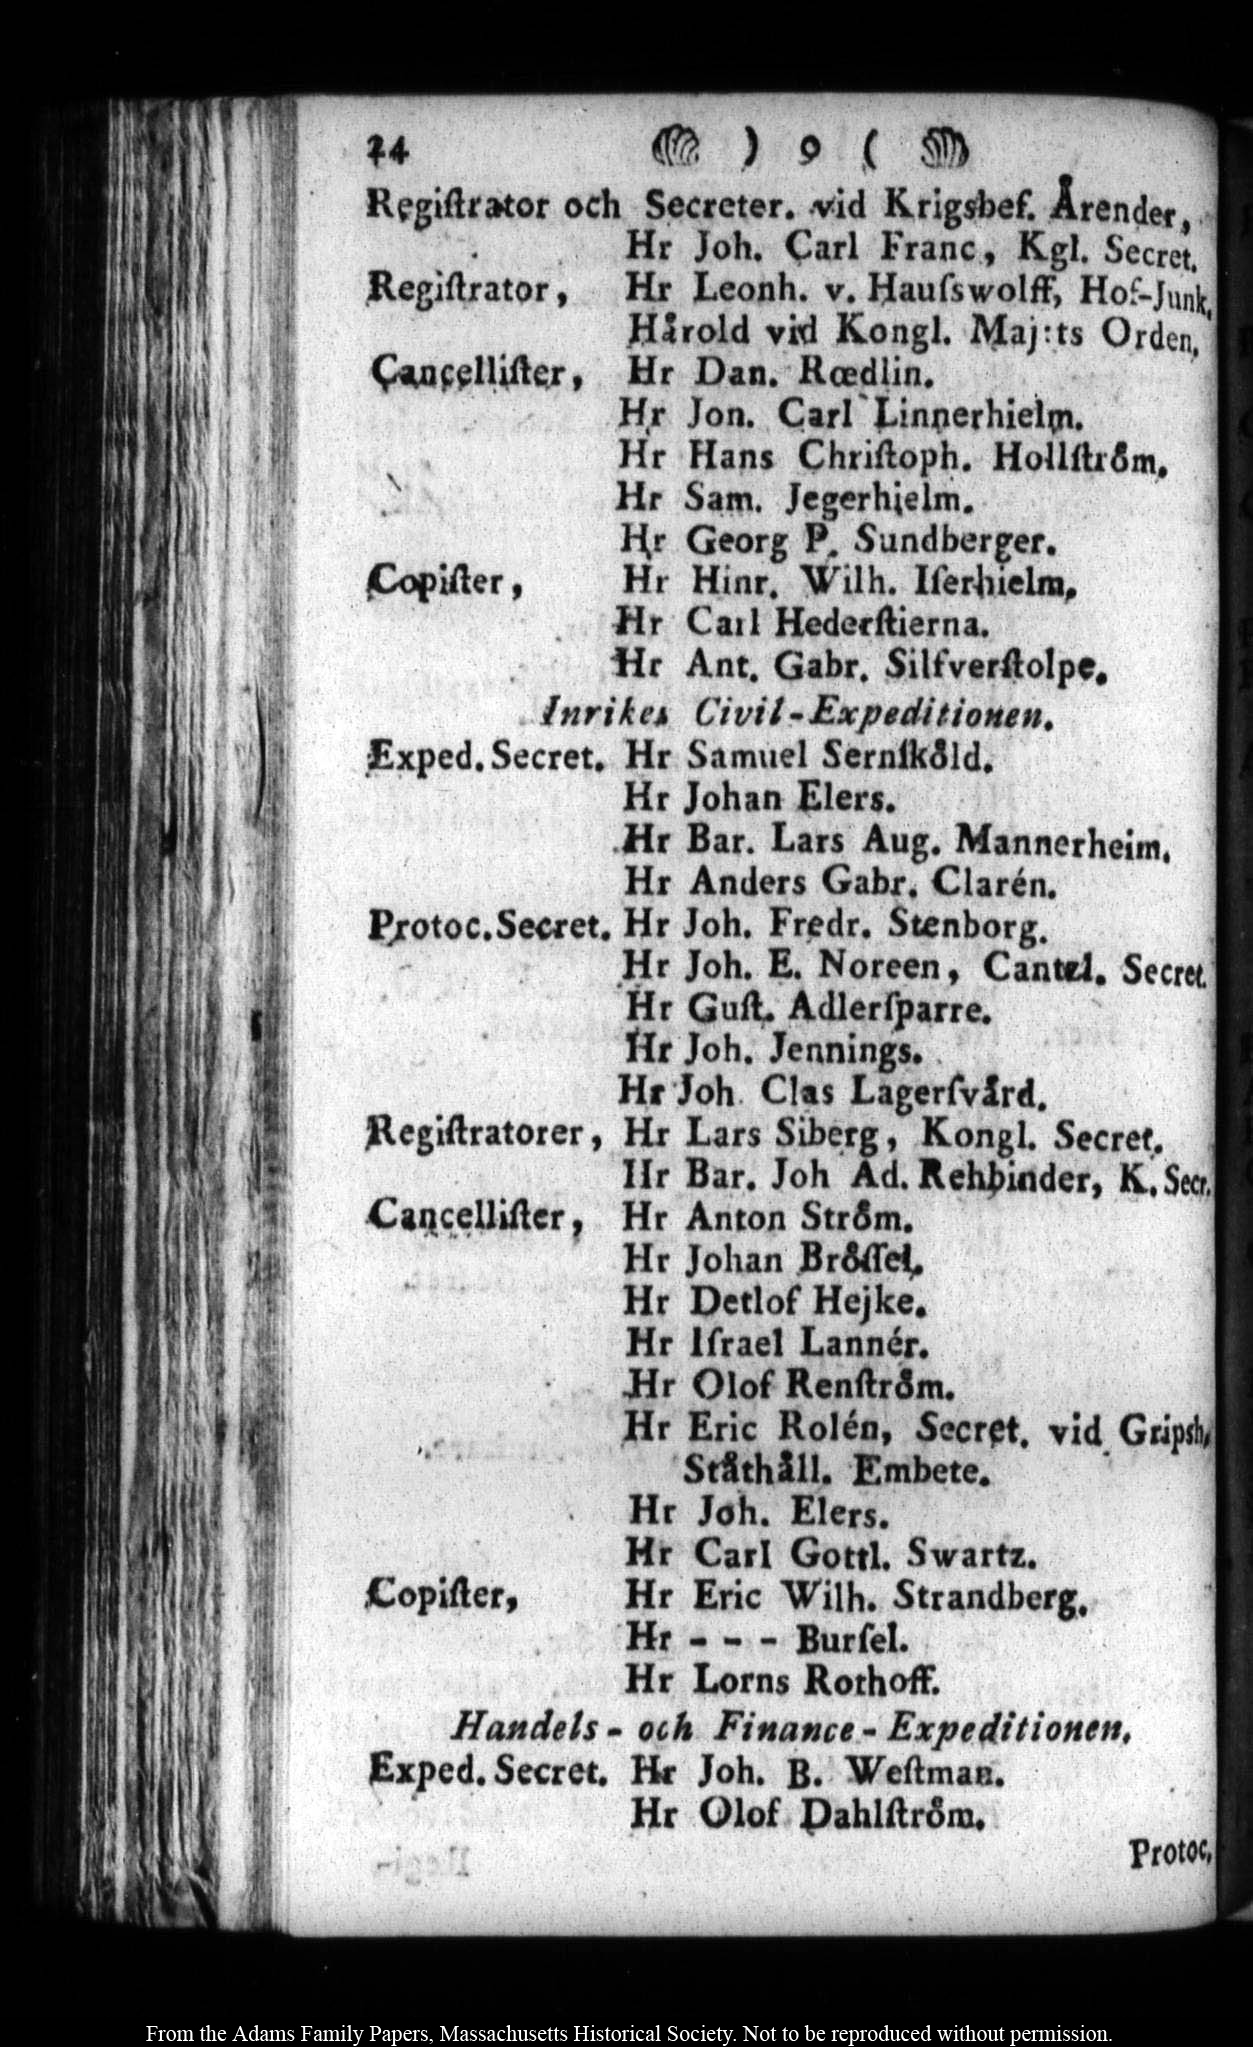 24 ) 0 (
Regiſtrator och Secreter. vid Krigsbef. Årender,
Hr Joh. Carl Franc, Kgl. Secret.
Regiſtrator, Hr Leonh. v. Hauſswolff, Hof-Junk.
Hårold vid Kongl. Maj:ts Orden,
Cancelliſter, Hr Dan. Rœdlin.
Hr Jon. Carl Linnerhielm.
Hr Hans Chriſtoph. Hollſtrům.
Hr Sam. Jegerhielm.
Hr Georg P. Sundberger.
Copiſter, Hr Hinr. Wilh. Iſerhielm,
Hr Carl Hederſtierna.
Hr Ant. Gabr. Silfverſtolpe.
Inrikes Civil-Expeditionen.
Exped. Secret. Hr Samuel Sernſkoͤld.
Hr Johan Elers.
Hr Bar. Lars Aug. Mannerheim.
Hr Anders Gabr. Clarén.
Protoc. Secret. Hr Joh. Fredr. Stenborg.
Hr Joh. E. Noreen, Cantzl. Secret.
Hr Guſt. Adlerſparre.
Hr Joh. Jennings.
Hr Joh. Clas Lagerſvård.
Regiſtratorer, Hr Lars Siberg, Kongl. Secret.
Hr Bar. Joh Ad. Rehbinder, K. Secr.
Cancelliſter, Hr Anton Stroͤm.
Hr Johan Broͤſſel.
Hr Detlof Hejke.
Hr Iſrael Lannér.
Hr Olof Renſtroͤm.
Hr Eric Rolén, Secret. vid Gripsh.
Ståthåll. Embete.
Hr Joh. Elers.
Hr Carl Gottl. Swartz.
Copiſter, Hr Eric Wilh. Strandberg.
Hr - - - Burſel.
Hr Lorns Rothoff.
Handels - och Finance - Expeditionen.
Exped. Secret. Hr Joh. B. Weſtman.
Hr Olof Dahlſtroͤm.
Protoc.
From the Adams Family Papers, Massachusetts Historical Society. Not to be reproduced without permission.